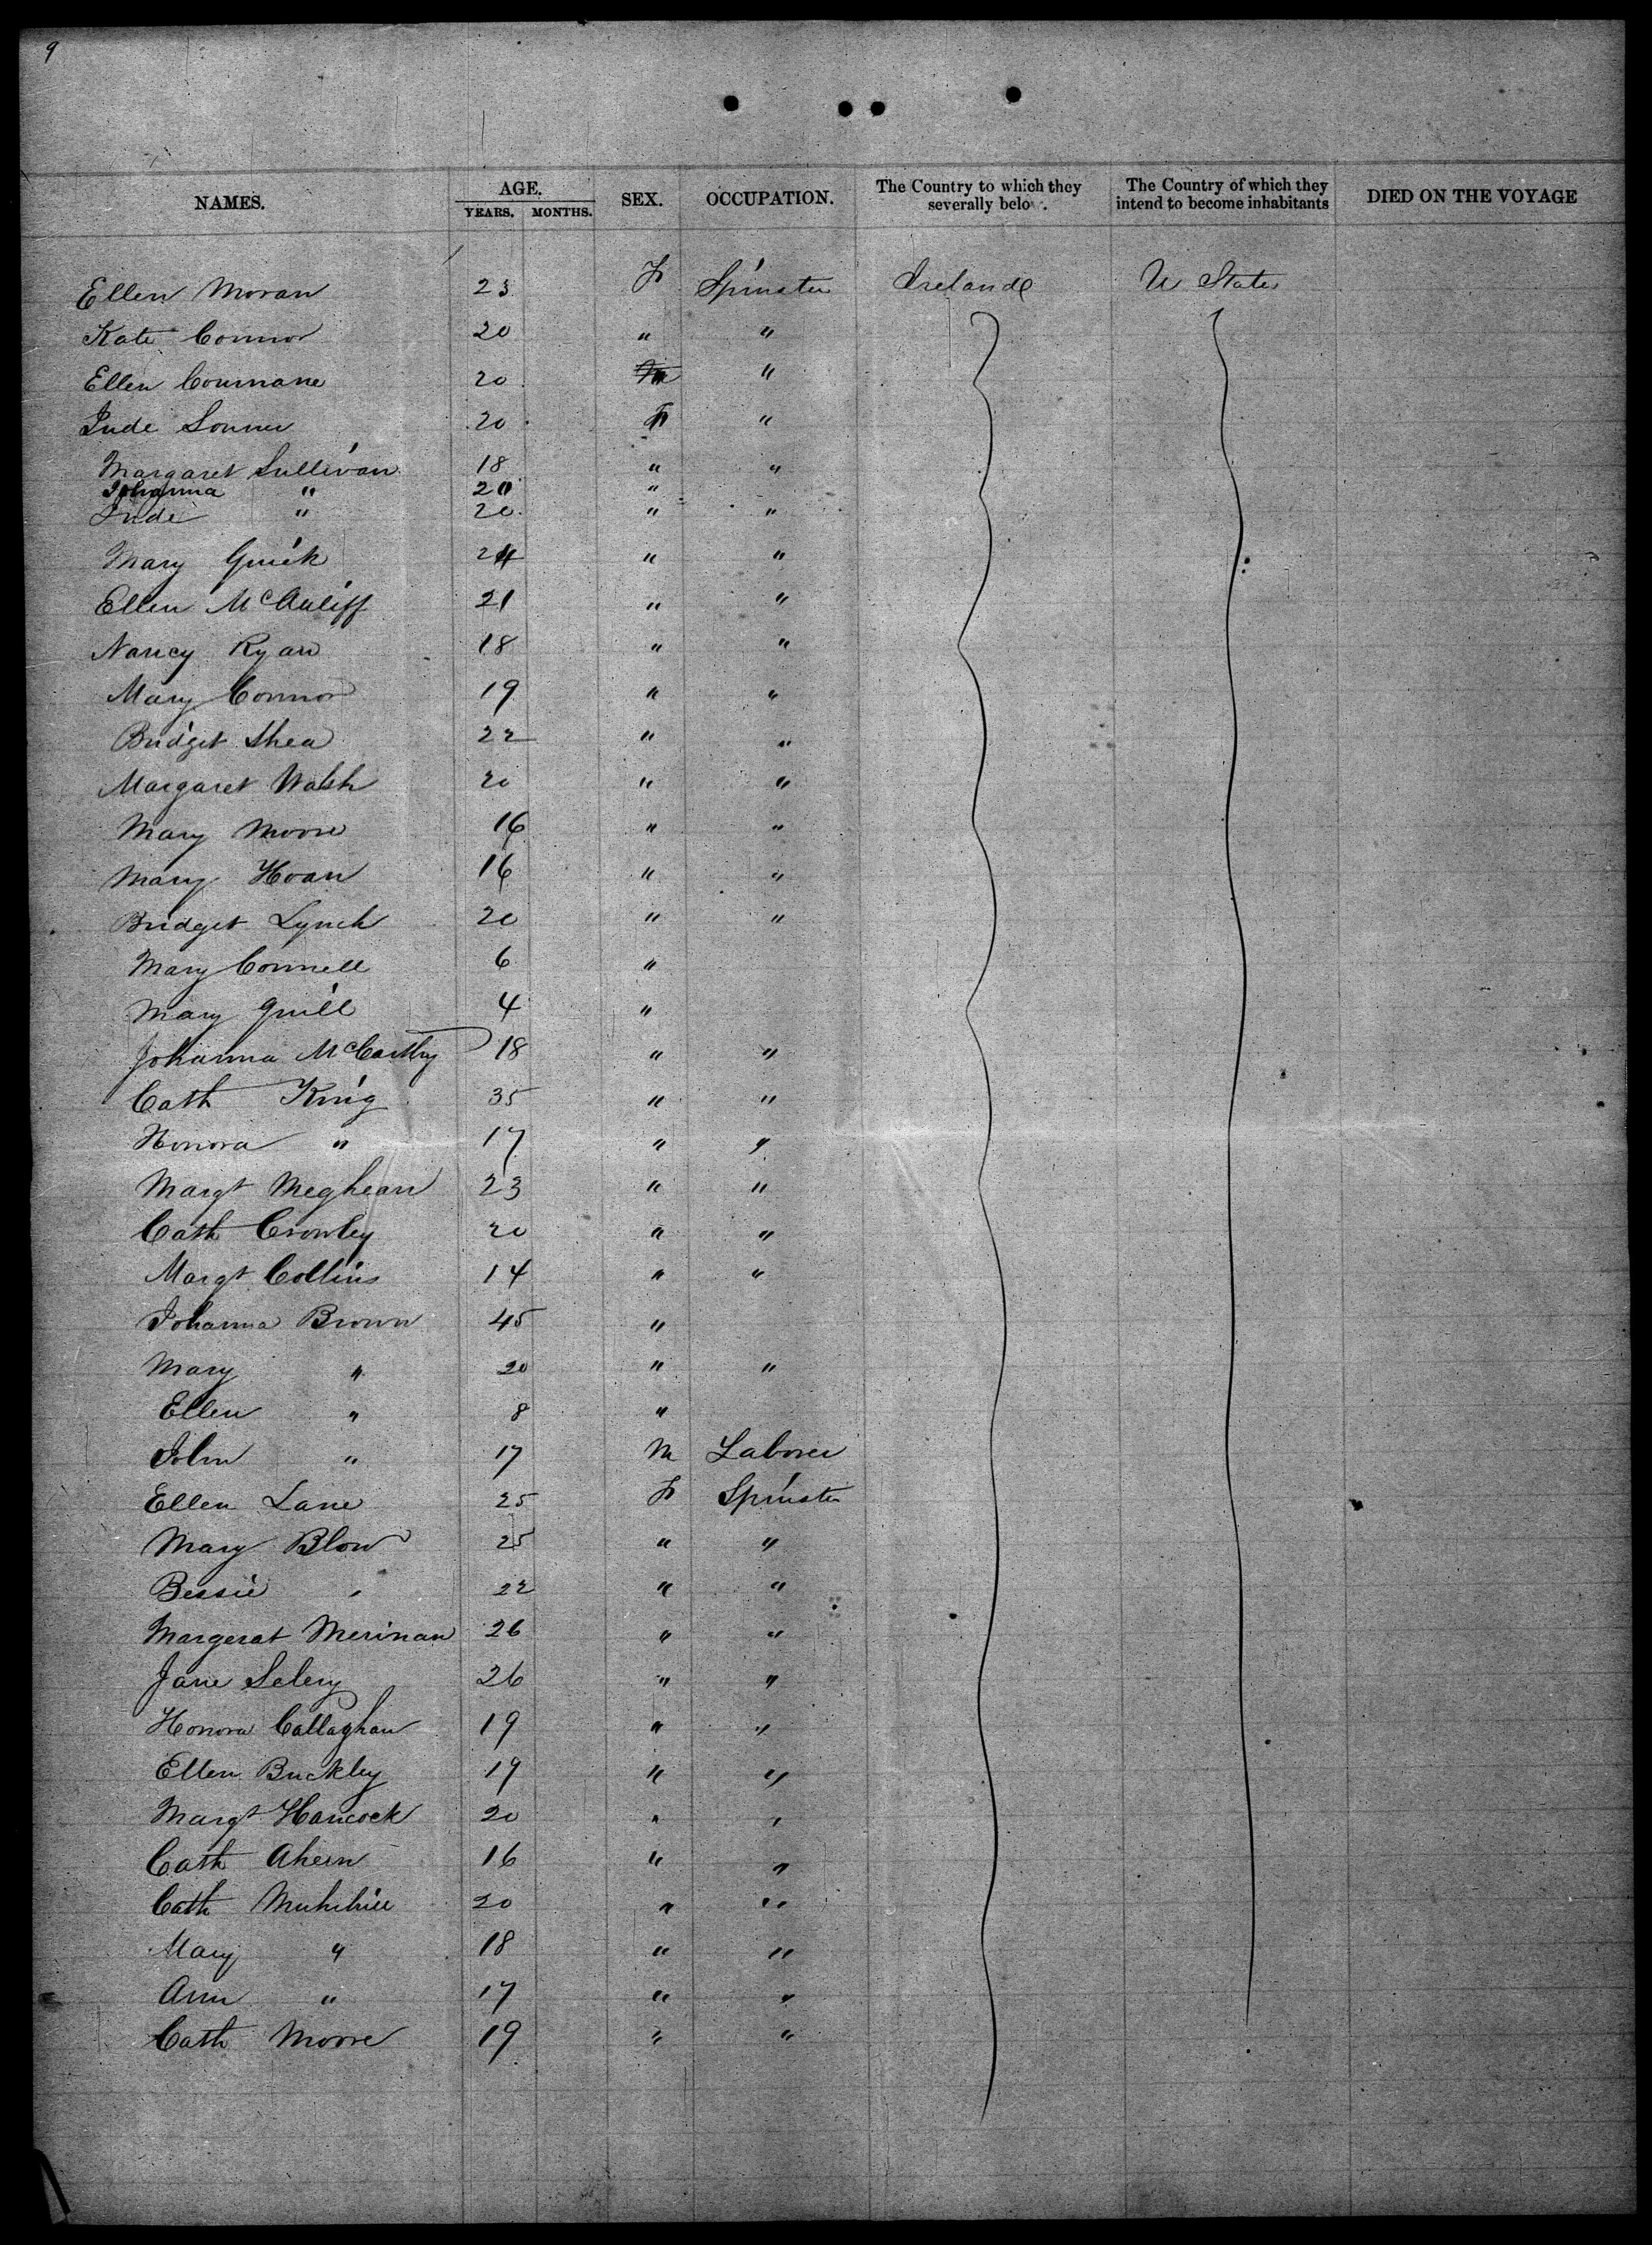 9
NAMES. AGE. SEX. OCCUPATION. The Country to which they severally belo . The Country of which they intend to become inhabitants DIED ON THE VOYAGE
YEARS. MONTHS.
Ellen Moran 23 F Spinster Ireland U States
Kate Connor 20 " "
Ellen Cournane 20 "
Jude 20 F "
Margaret Sullivan 18 " "
Johanna " 20 "
Jude " 20 " "
Mary Quirk 24 " "
Ellen McAuliff 21 " "
Nancy Ryan 18 " "
Mary Connor 19 " "
Bridget Shea 22 " "
Margaret Walsh 20 " "
Mary Moore 16 " "
Mary Hoan 16 " "
Bridget Lynch 20 " "
Mary Connell 6 "
Mary Quill 4 "
Johanna McCarthy 18 " "
Cath King 35 " "
Honora " 17 " "
Margt Meghean 23 " "
Cath Crowley 20 " "
Margt Collins 14 " "
Johanna Brown 45 "
Mary " 20 " "
Ellen " 8 "
John " 17 M Laborer
Ellen Lane 25 F Spinster
Mary Blow 25 " "
Bessie " 22 " "
Margerat Merinan 26 " "
Jane Selery 26 " "
Honora Callaghan 19 " "
Ellen Buckley 19 " "
Margt Hancock 20 " "
Cath Ahern 16 " "
Cath 20 " "
Mary " 18 " "
Ann " 17 " "
Cath Moore 19 " "